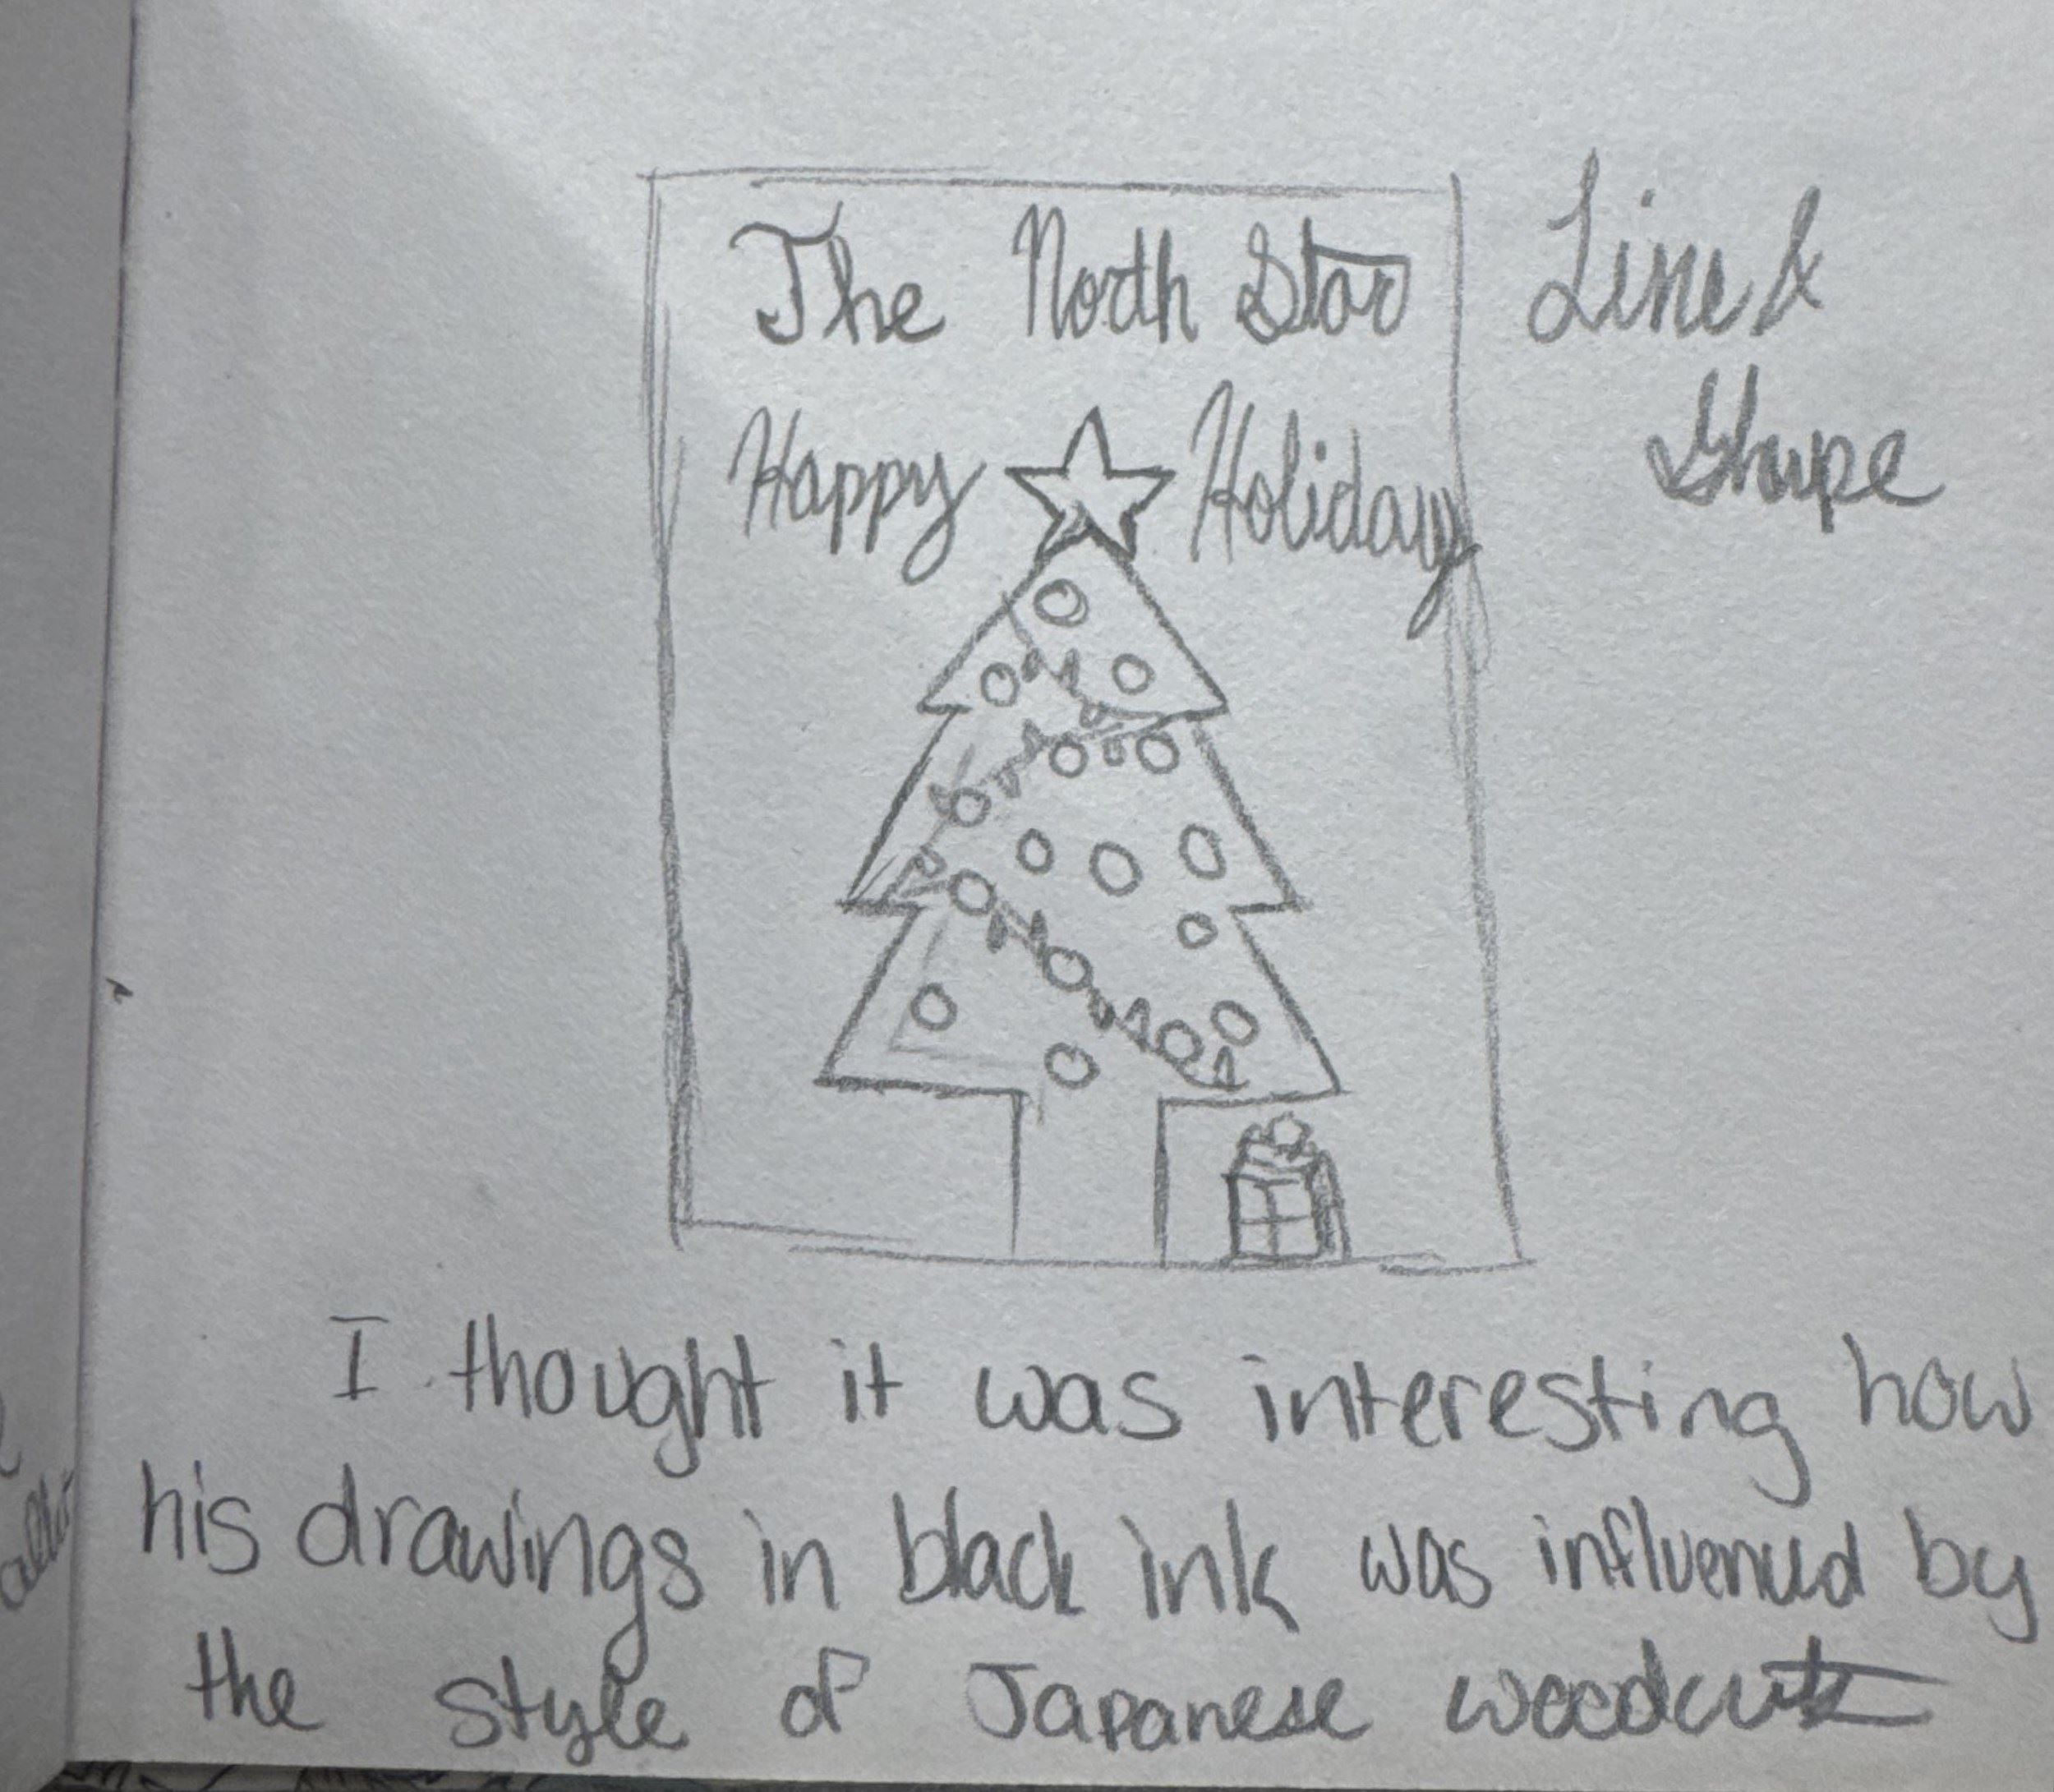 The North Star
Happy Holiday
Line &
Shape
I thought it was interesting how
his drawings in black ink was influenced by
the style of Japanese woodcut